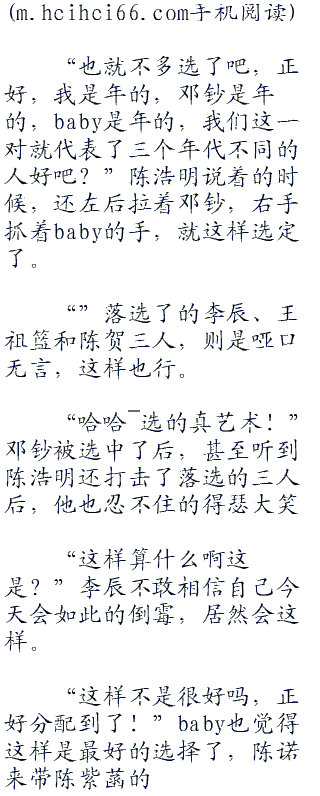 (m.hcihci66.com手机阅读)
“也就不多选了吧，正
好，我是年的，邓钞是年
的，baby是年的，我们这一
对就代表了三个年代不同的
人好吧？”陈浩明说着的时
候，还左后拉着邓钞，右手
抓着baby的手，就这样选定
了。
“”落选了的李辰、王
祖篮和陈贺三人，则是哑口
无言，这样也行。
“哈哈~选的真艺术！”
邓钞被选中了后，甚至听到
陈浩明还打击了落选的三人
后，他也忍不住的得瑟大笑
“这样算什么啊这
是？”李辰不敢相信自己今
天会如此的倒霉，居然会这
样。
“这样不是很好吗，正
好分配到了！”baby也觉得
这样是最好的选择了，陈诺
来带陈紫菡的